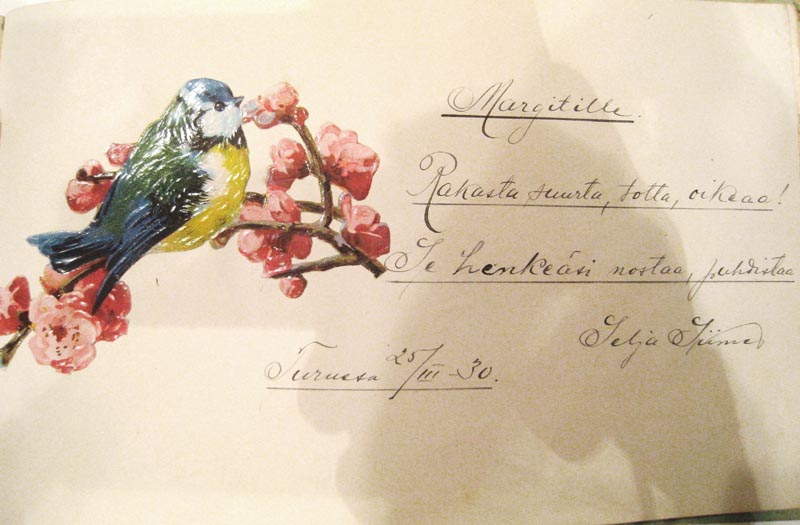 Margitille.
Rakasta suurta, totta, oikeaa!
Se henkeäsi nostaa, puhdistaa
Selja
Turussa 25/III -30.